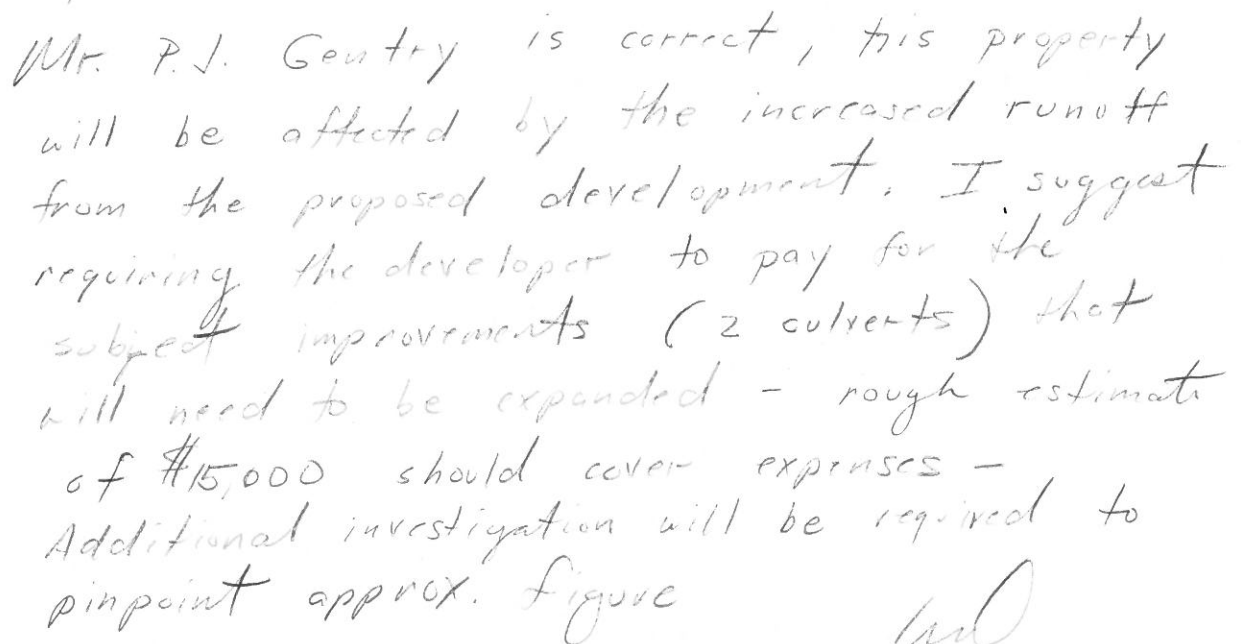 Mr. P.J. Gentry is correct, his property
will be affected by the increased runoff
from the proposed development. I suggest
requiring the developer to pay for the
subject improvements (2 culverts) that
will need to be expanded - rough estimate
of $15,000 should cover expenses -
Additional investigation will be required to
pinpoint approx. figure